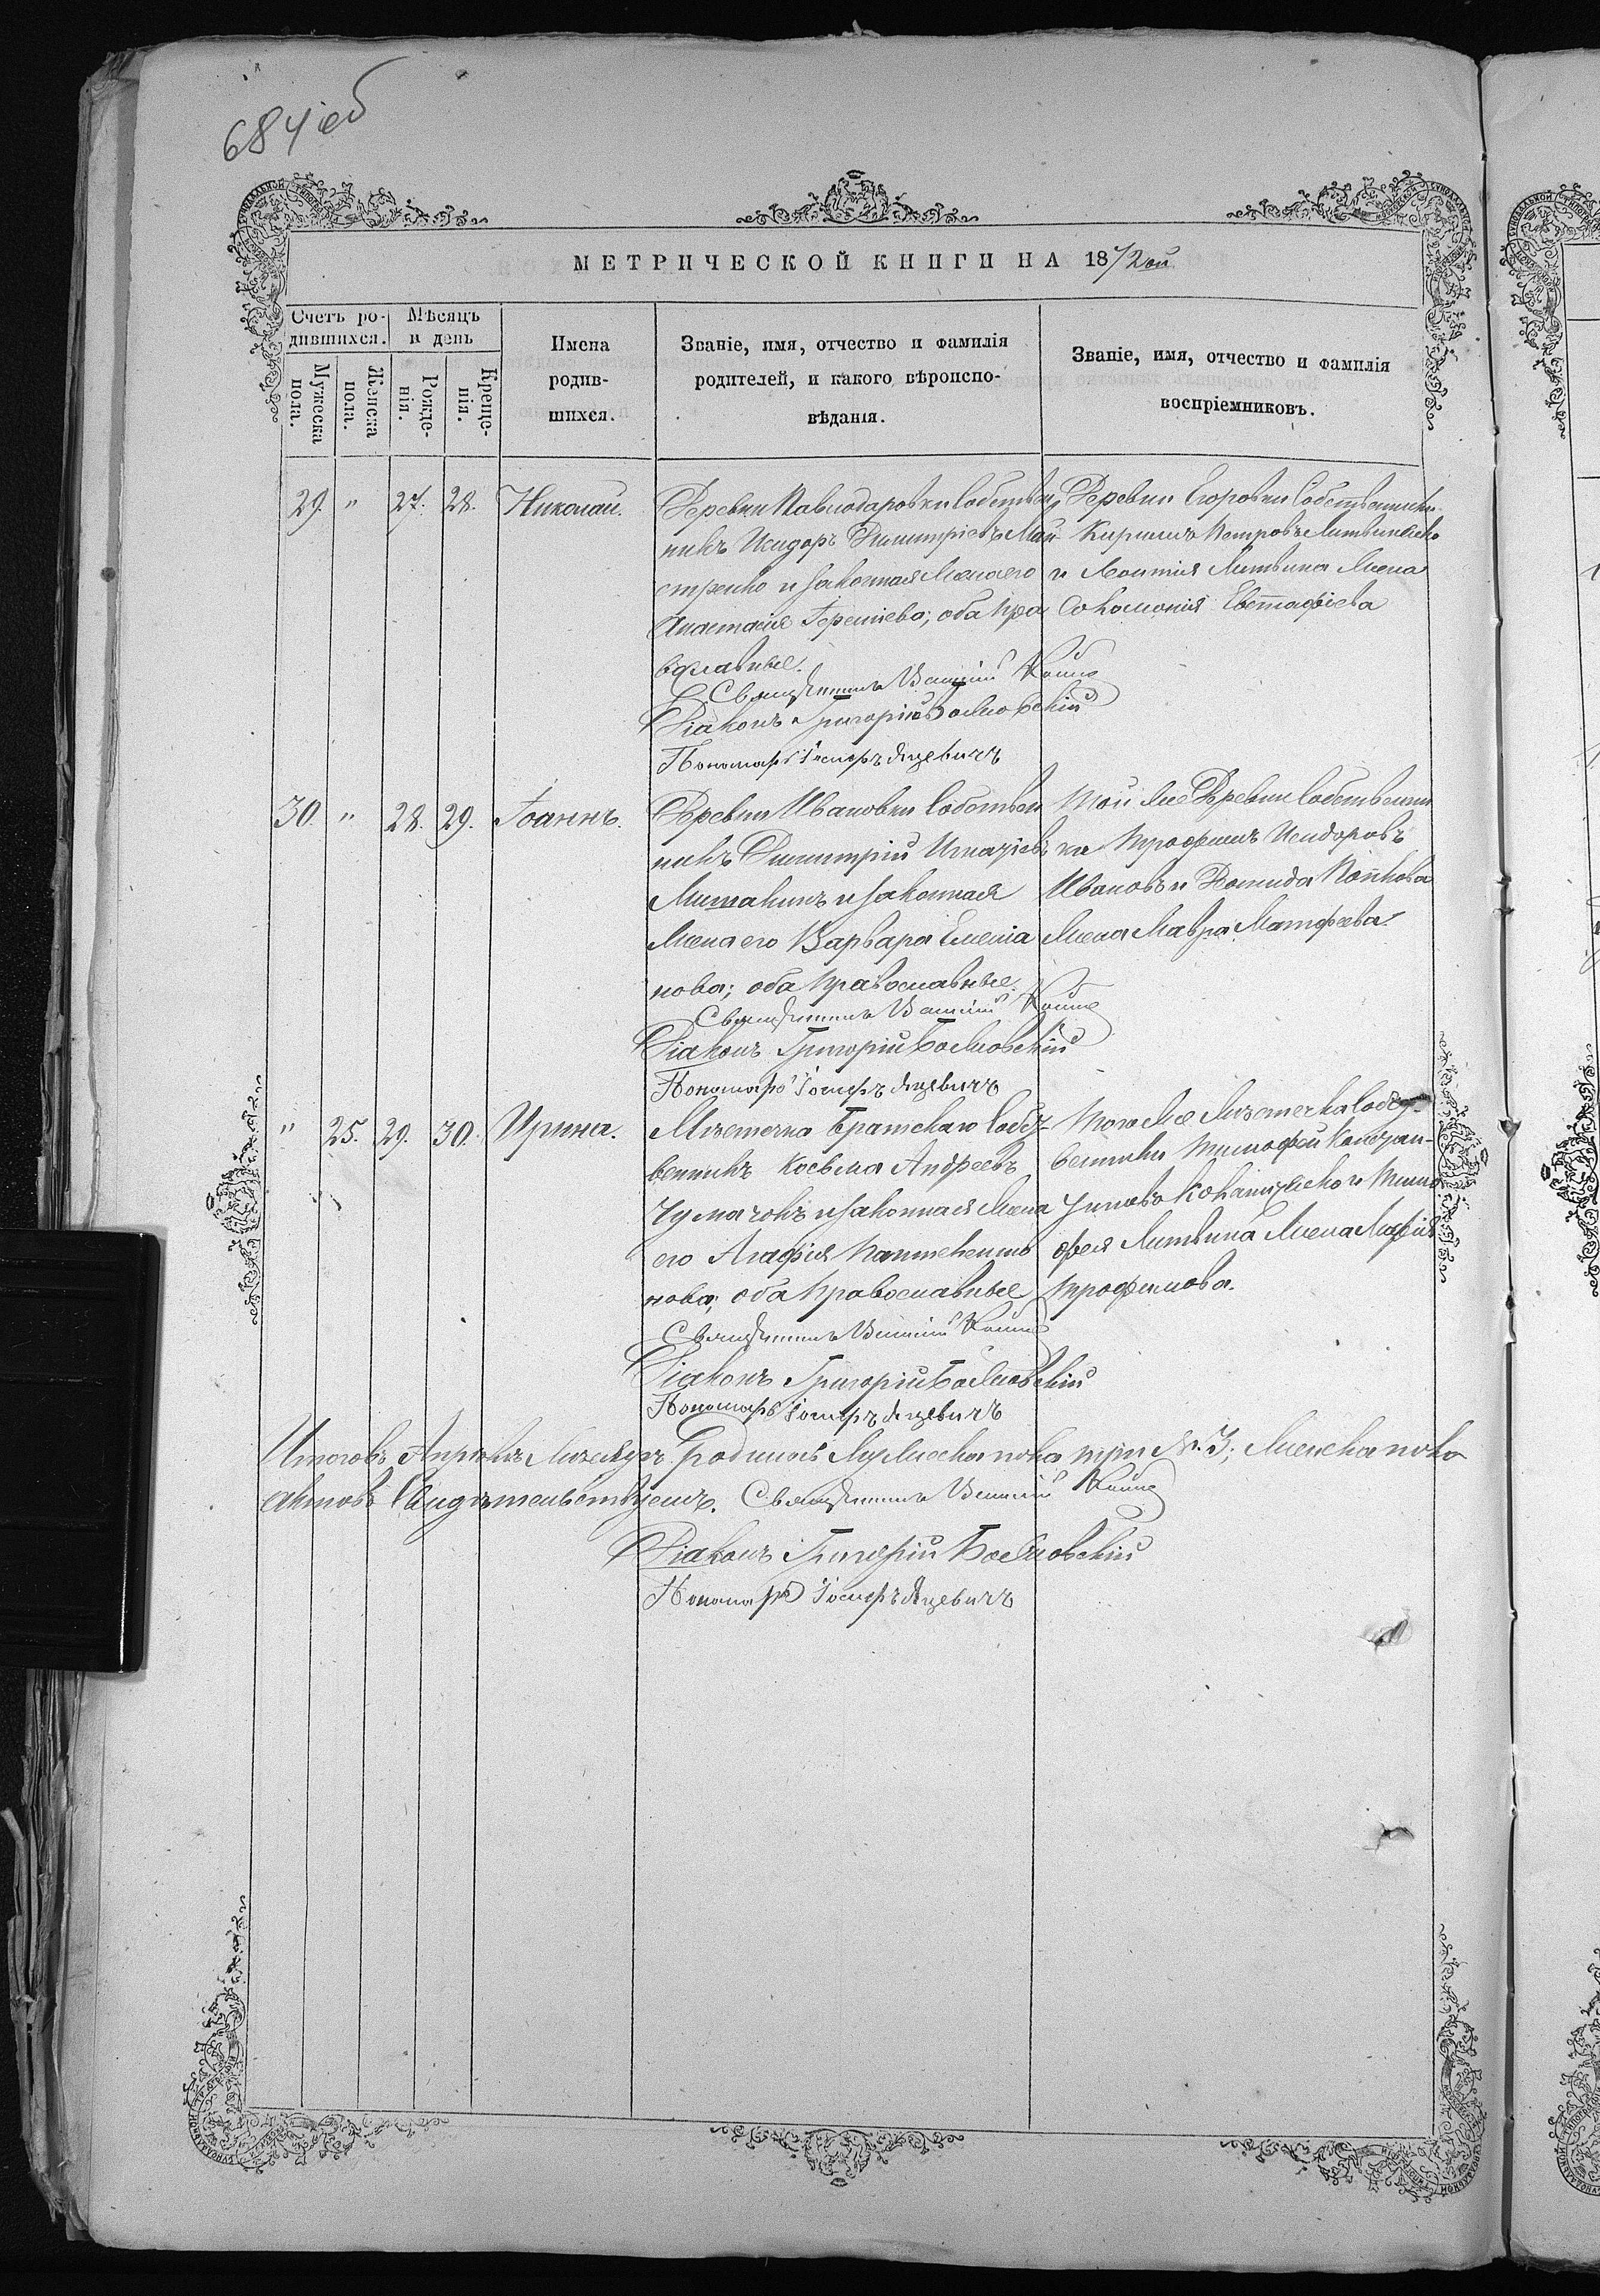 684 об
МЕТРИЧЕСКОЙ КНИГИ НА 1872ой
Счетъ ро-
дившихся.
Мѣсяцъ
и день
Мужеска
пола.
Женска
пола.
Рожде-
нія.
Креще-
нія.
Имена
родив-
шихся.
Званіе, имя, отчество и фамилія
родителей, и какого вѣроиспо-
вѣданія.
Званіе, имя, отчество и фамилія
воспріемниковъ.
29. " 27. 28. Николай.
Деревни Павлодаровки Собствен
никъ Исидоръ Димитріевъ Май
стренко и законная жена его
Анастасія ; оба Пра
вославные.
Священникъ
Діаконъ Григорій
Пономарь Іосифъ Яцевичъ
Деревни Егоровки Собственники
Кириллъ Петровъ
и Леонтія Литвина жена
Соломонія Евстафіева
30. " 28. 29. Іоаннъ.
Деревни Ивановки Собствен
никъ Димитрій Игнатіевъ
и законная
жена его Варвара Емелія
нова; оба Православные.
Священникъ
Діаконъ Григорій
Пономарь Іосифъ Яцевичъ
Той же Деревни Собственни
ки Трофимъ Исидоровъ
Ивановъ и
жена Мавра Матфеева.
" 25. 29. 30. Ирина.
Мѣстечка Братскаго Собст
венникъ Косьма Андреевъ
и законная жена
его Агафія Пантелеимо
нова; оба Православные
Священникъ
Діаконъ Григорій
Пономарь Іосифъ Яцевичъ
Того же Мѣстечка Собст-
венники Тимофей
и Тимо
фея Литвина жена Марія
Трофимова.
Итого въ Апрѣлѣ Мѣсяцѣ родилось Мужеска пола три № 3; Женска пола
актовъ Свидѣтельствуемъ. Священникъ
Діаконъ Григорій
Пономарь Іосифъ Яцевичъ